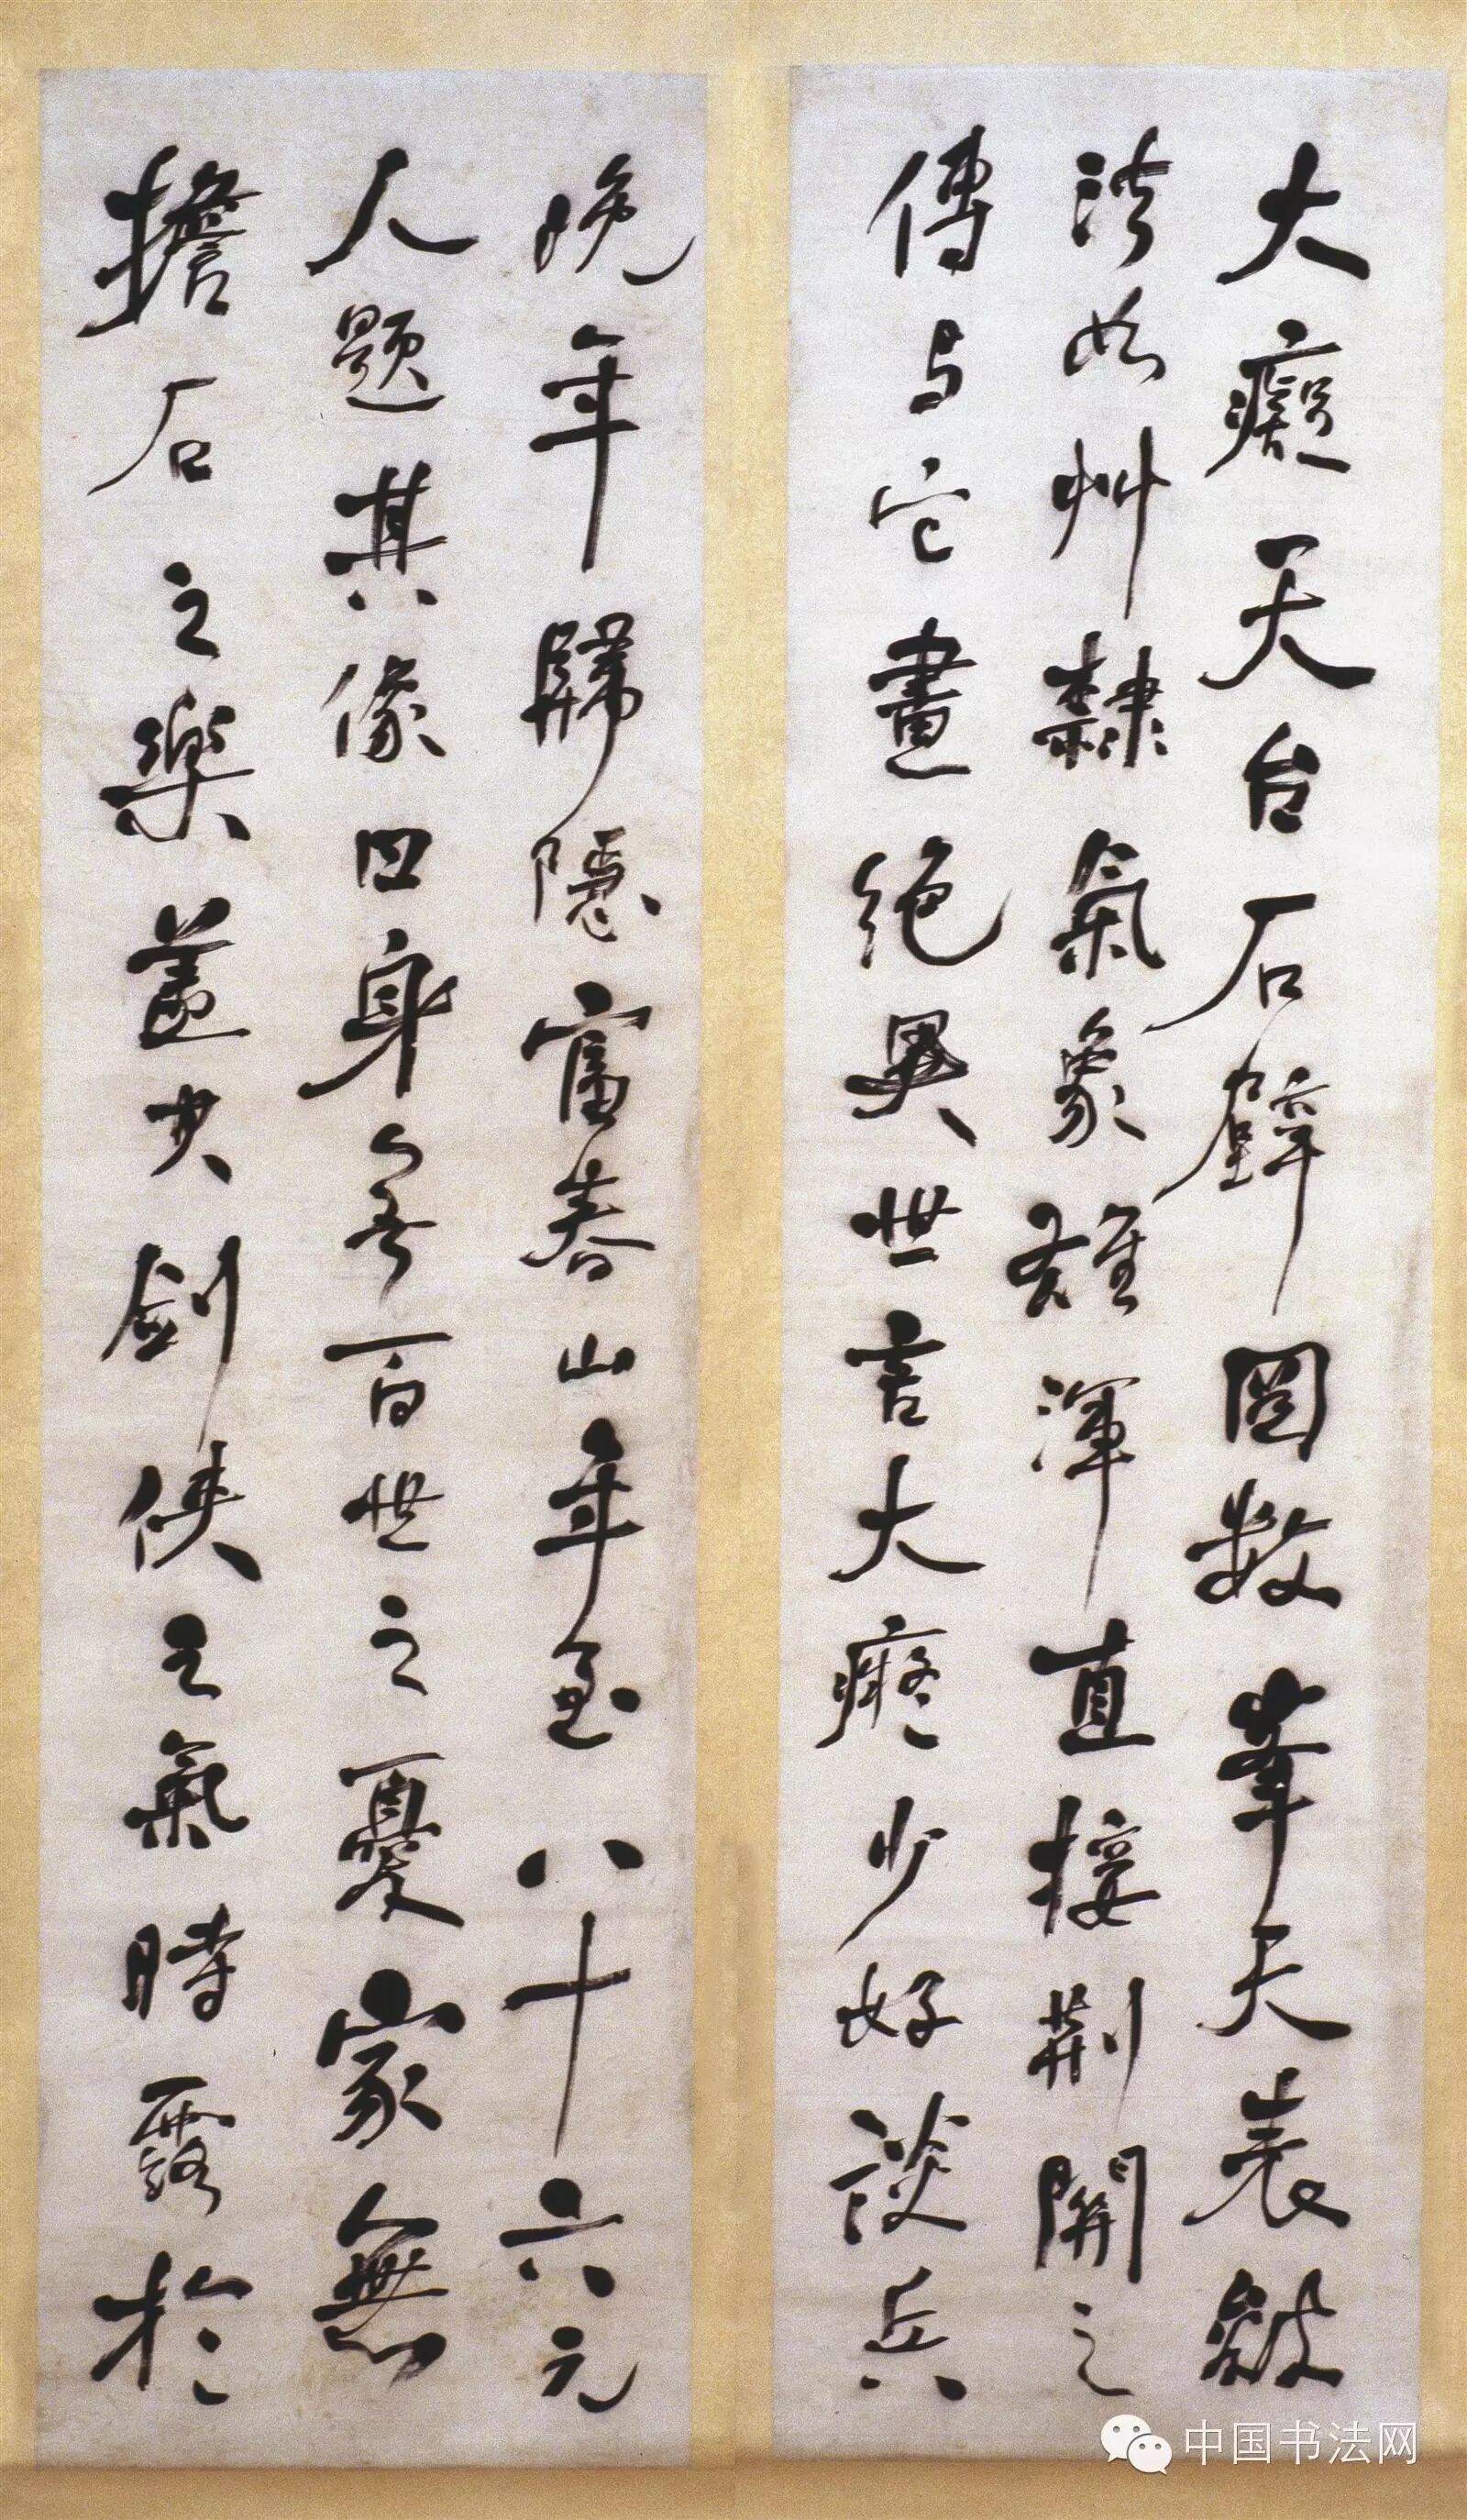 大癡天台石壁圖數峯天表皴
法如艸隸氣象雄渾直接荆關之
傳与它畫絕異世言大癡少好談兵
晚年歸隱富春山年至八十六元
人題其像曰身無百世之憂家無
擔石之樂蓋其劍俠之氣時露於
中国书法网